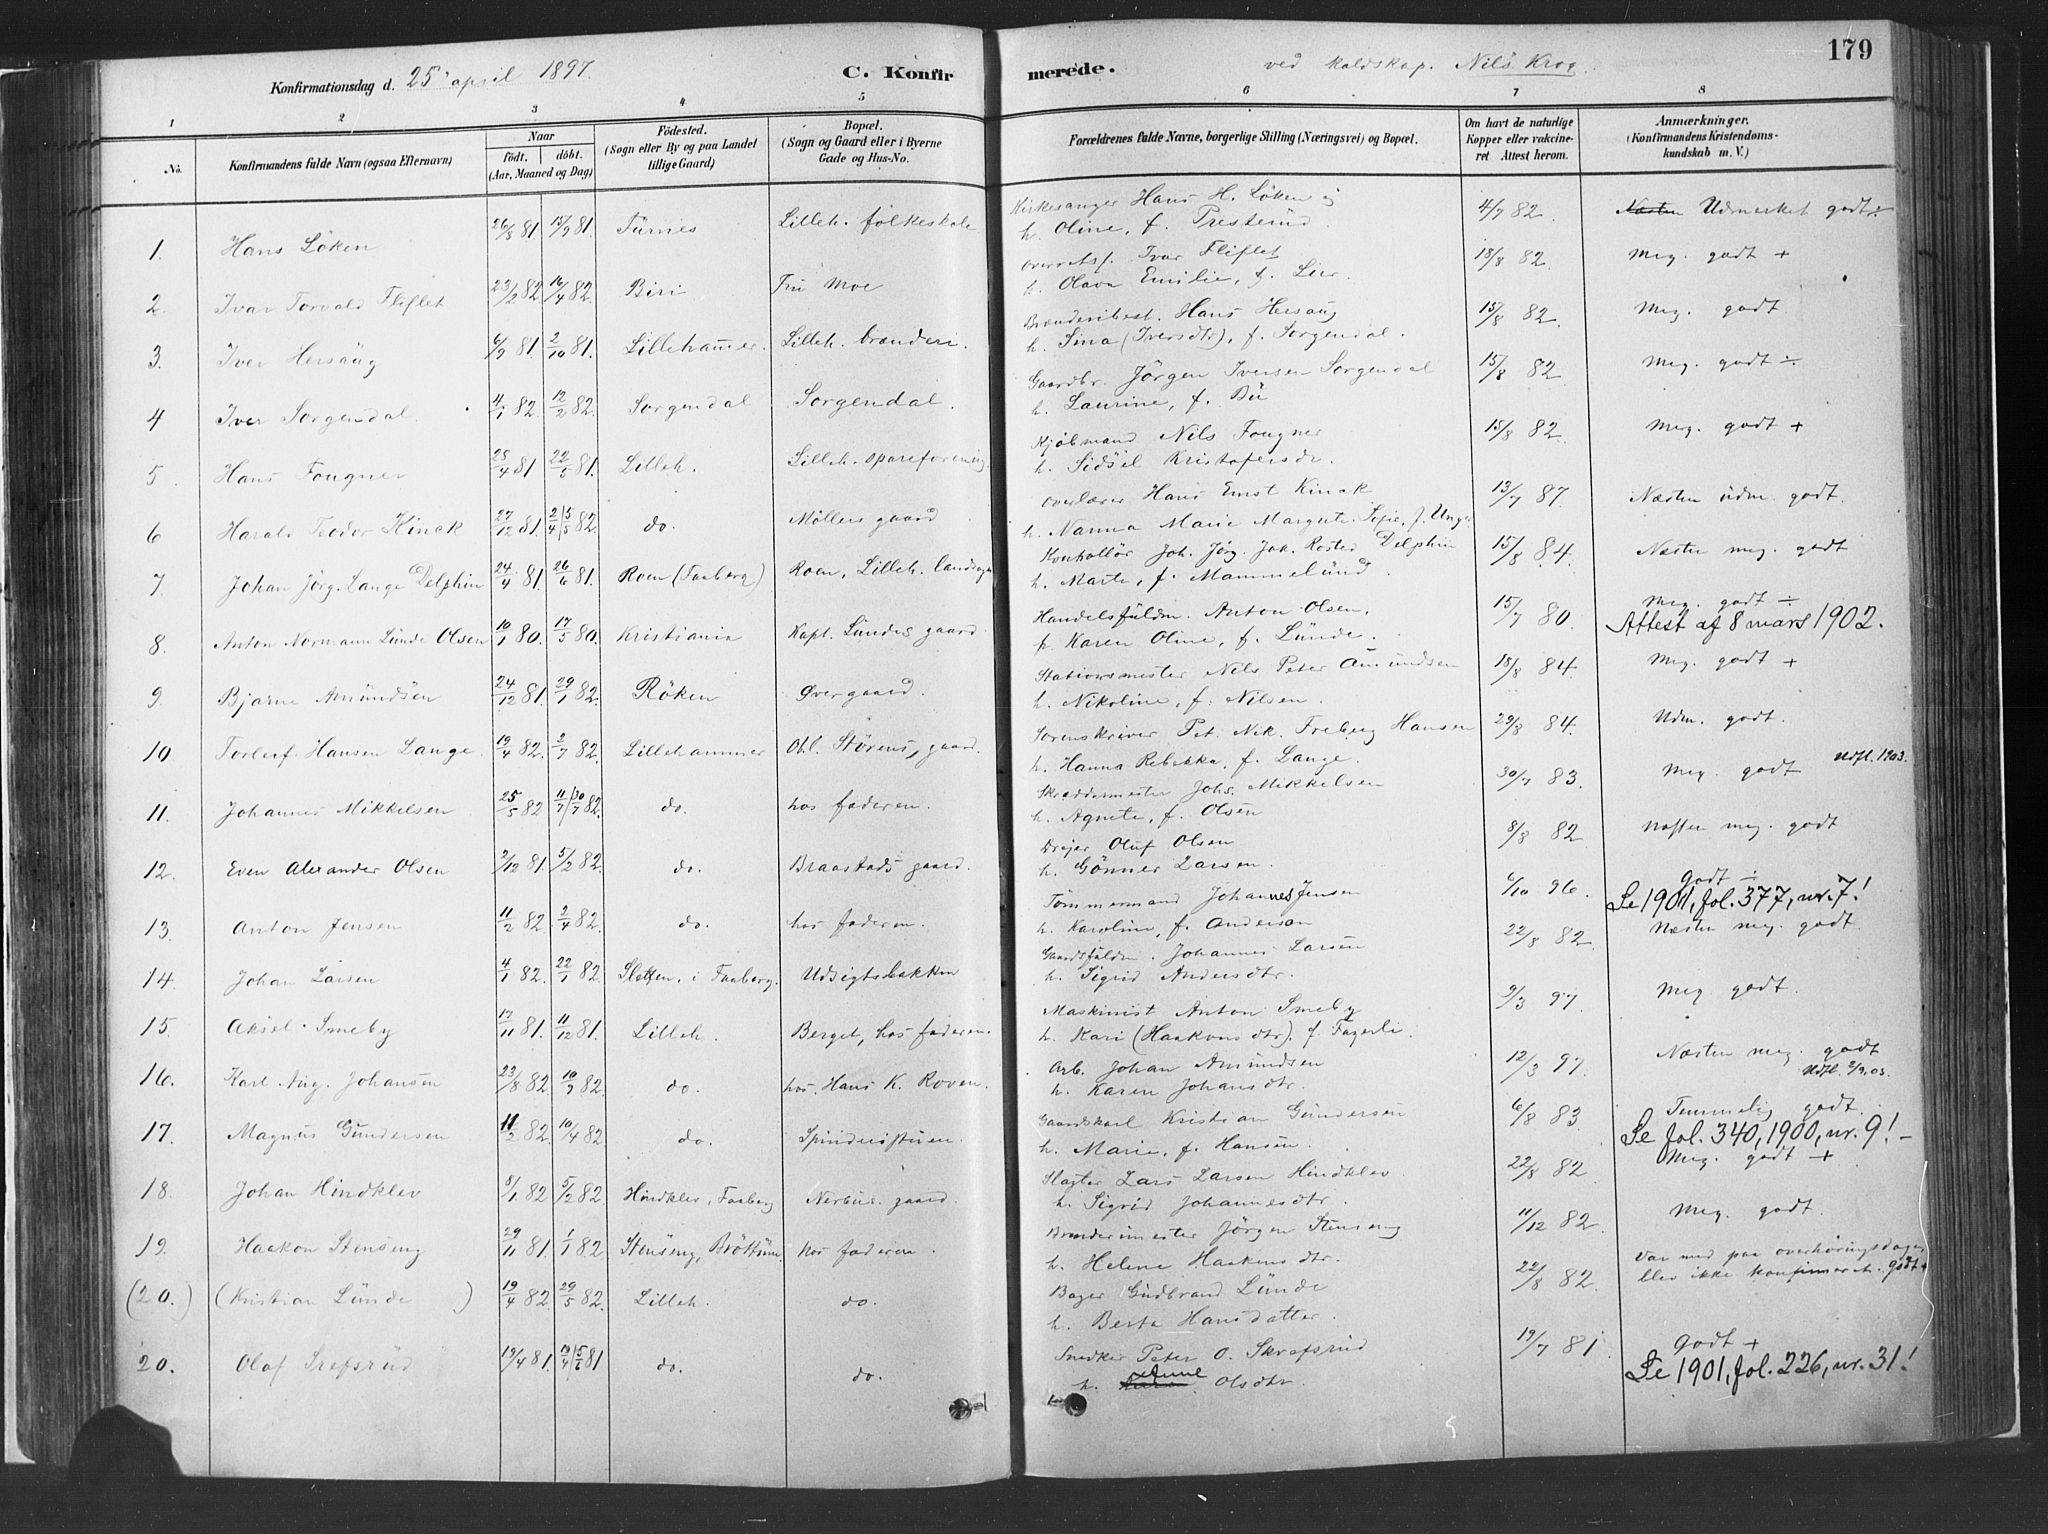 Konfirmationsdag d. 25 april 1897. C. Konfirmerede. ved kaldskap. Nils Krog. 179
1 2 3 4 5 6 7 8
No. Konfirmandens fulde Navn (ogsaa Efternavn) Naar født. døbt. (Aar, Maaned og Dag) Fødested. (Sogn eller By og paa Landet tillige Gaard) Bopæl. (Sogn og Gaard eller i Byerne Gade og Hus-No. Forældrenes fulde Navne, borgerlige Stilling (Næringsvei) og Bopæl. Om havt de naturlige Kopper eller vakcineret Attest herom. Anmærkninger. (Konfirmandens Kristendomskundskab m. V.)
1. Hans Löken 26/8 81. 15/9 81. Furnes Lilleh. folkeskole Kirkesanger Hans H. Löken og 4/7 82. Udmerket godt ÷
h. Oline, f. Presterud
2. Ivar Torvald Fliflet 23/2 82 16/4 82. Biri Fru Moe Ivar Fliflet 18/8 82. Meg. godt +
h. Olava Emilie, f. Lier.
3. Iver Hersaug 6/9 81 2/10 81. Lillehamer. Lilleh. brænderi. Brænderibest. Hans Hersaug 15/8 82. Meg. godt
h. Sina (Iversdtr), f. Sorgendal.
4 Iver Sorgendal. 4/1 82. 12/2 82. Sorgendal Sorgendal. Gaardbr. Jörgen Iversen Sorgendal 15/8 82 Meg. godt ÷
h. Laurine, f. Bu
5. Hans Fougner 25/4 81 22/5 81. Lilleh. Lilleh. spareforening. Kjöbmand Nils Fougner 15/8 82. Meg. godt +
h. Sidsel Kristofersdr.
6 Harald Teodor Kinck 27/12 81. 2/4 | 5/5 82. do. Möllers gaard Overlærer Hans Ernst Kinck 13/7 87. Næsten udm. godt.
h. Nanna Marie Margrete f. Unger
7. Johan Jörg. Lange Delphin 24/4 81. 26/6 81. Roen (Faaberg) Roen, Lilleh. landsogn Kontrollör Joh. Jörg. Joh. Rosted Delphin 15/8 84. Næsten meg. godt
h. Marte, f. Mammelund.
8. Anton Normann Lunde Olsen 10/1 80. 17/5 80. Kristiania Kapt. Lundes gaard. Handelsfuldm. Anton Olsen, 15/7 80. Meg. godt ÷
h. Karen Oline, f. Lunde. Attest af 8 mars 1902.
9. Bjarne Amundsen 24/12 81. 29/1 82. Röken Övergaard. Stationsmester Nils Peter Amundsen 18/8 84. Meg. godt +
h. Nikoline, f. Nilsen.
10 Torleif Hansen Lange. 19/4 82. 2/7 82. Lillehammer Obl. Störens, gaard. Sorenskriver Pet. Nik. Freberg Hansen 29/8 84. Udm. godt.
h. Hanna Rebekka, f. Lange.
11. Johannes Mikkelsen 25/5 82 11/7 | 30/7 82. do. hos faderen. Skræddermester Johs. Mikkelsen 30/7 83. Meg. godt Udfl. 1903.
h. Agnete, f. Olsen
12. Even Alexander Olsen 2/12 81. 5/2 82. do. Braastads gaard. Drejer Oluf Olsen 8/8 82 Næsten meg. godt
h. Gönner Larsen.
13. Anton Jensen 11/2 82 2/4 82. do. hos faderen. Tömmermand Johannes Jensen 6/10 96. Godt ÷
h. Karoline, f. Anderson Se 1901, fol. 377, nr. 7!
14. Johan Larsen 4/1 82. 22/1 82 Sletten, i Faaberg. Udsigtsbakken Gaardsfuldm. Johannes Larsen 22/8 82. Næsten meg. godt
h. Sigrid Andersdtr.
15. Aksel Smeby 17/11 81. 11/12 81. Lilleh. Berget, hos faderen. Maskinist Anton Smeby 9/3 97. Meg. godt.
h. Kari (Haakonsdtr). f. Fagerli.
16. Karl Aug. Johansen 23/8 82. 10/9 82. do. hos. Hans K. Roven. Arb. Johan Amundsen 12/3 97. Næsten meg. godt
h. Karen Johansdtr. Udfl. 2/9.03.
17. Magnus Gundersen 11/2 82. 10/4 82. do. Spinderistuen. Gaardskarl Kristian Gundersen 6/8 83. Temmelig godt.
h. Marie, f. Hansen. Se fol. 340, 1900, nr. 9! -
18. Johan Hindklev 8/1 82 5/2 82. Hindklev, Faaberg Nerbus gaard. Slagter Lars Larsen Hindklev. 22/8 82 Meg. godt +
h. Sigrid Johannesdtr.
19. Haakon Stenseng 29/11 81. 1/1 82 Stenseng, Bröttum hos faderen. Brænderimester Jörgen Stenseng 11/12 82. Meg. godt.
h. Helene Haakensdtr.
(20.) (Kristian Lunde ) 19/4 82 29/5 82. Lilleh. do. Bager Gudbrand Lunde 22/8 82. Var med paa overhöringsdagen,
h. Berta Hansdatter. blev ikke konfirmeret. Godt +
20. Olaf Srefsrud 19/4 81. 19/4 | 5/6 81 do. do. Snedker Peter O. Skrefsrud 19/7 81. Godt +
h. Olsdtr. Se 1901, fol. 226, nr. 31!